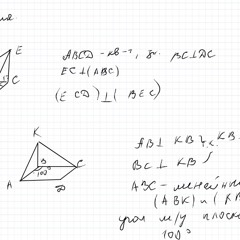 E
C
ABCD - кв-т, BC⊥DC
EC⊥(ABC)
(ECD)⊥(BEC)
K
B
100°
C
A
D
AB⊥KB
BC⊥KB
ABC - линейный
(ABK) и (KB
угол м/у плоск
100°